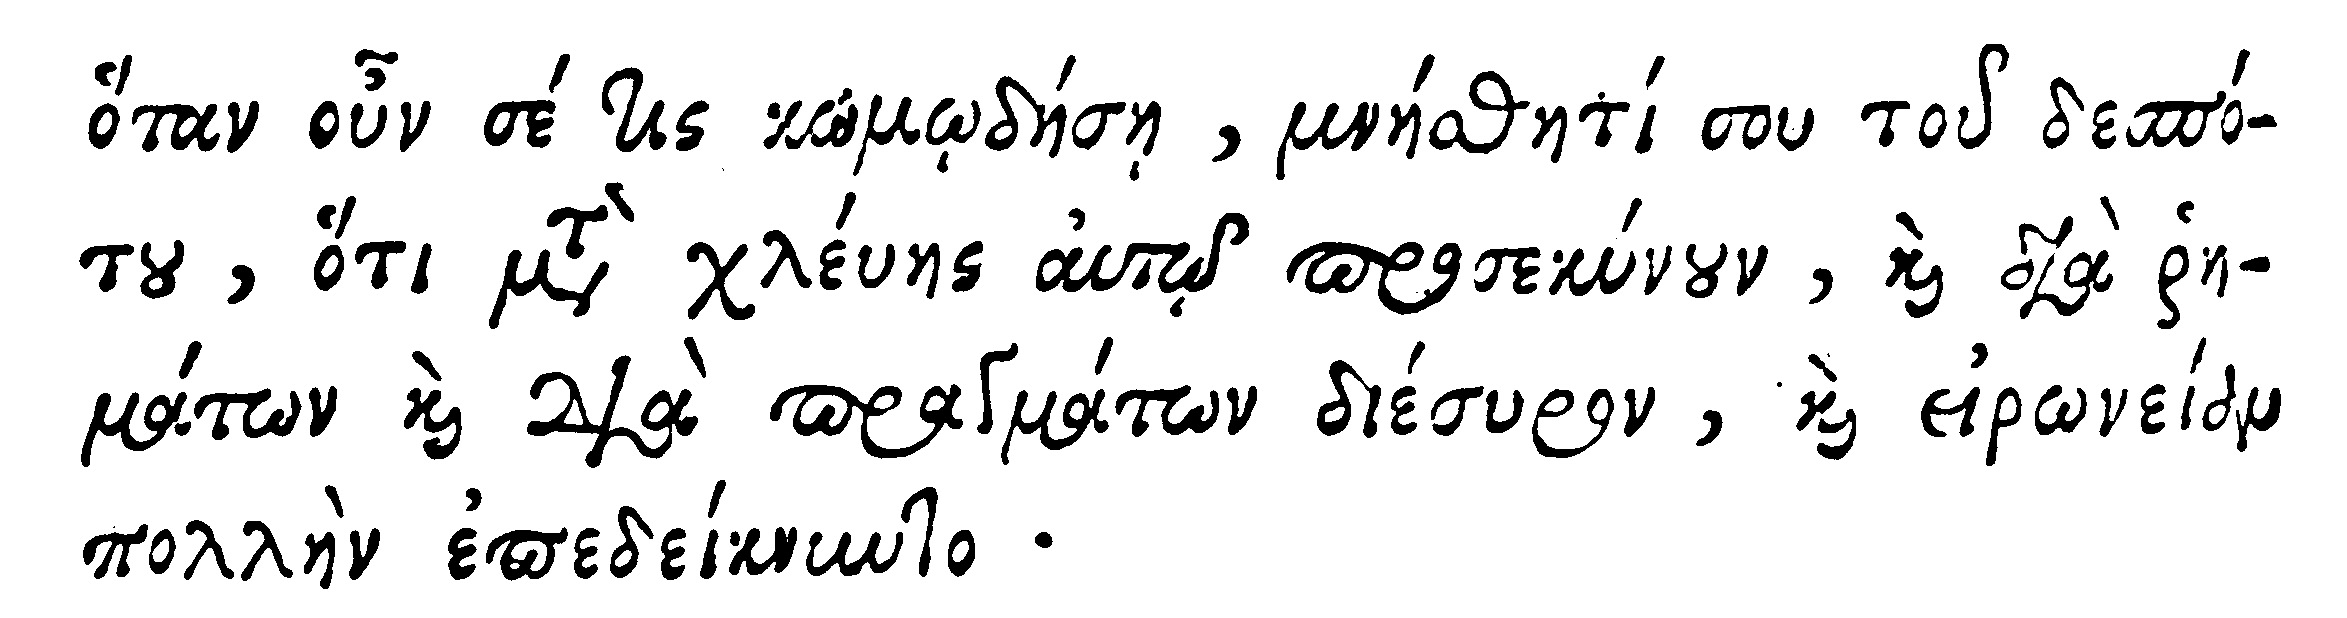 ὅταν οὖν σέ τις κωμῳδήσῃ, μνήσθητί σου τοῦ δεσπό-
του, ὅτι μετὰ χλεύης αὐτῷ προσεκύνουν, καὶ διὰ ῥη-
μάτων καὶ διὰ πραγμάτων διέσυρον, καὶ εἰρωνείαν
πολλὴν ἐπεδείκνυντο.